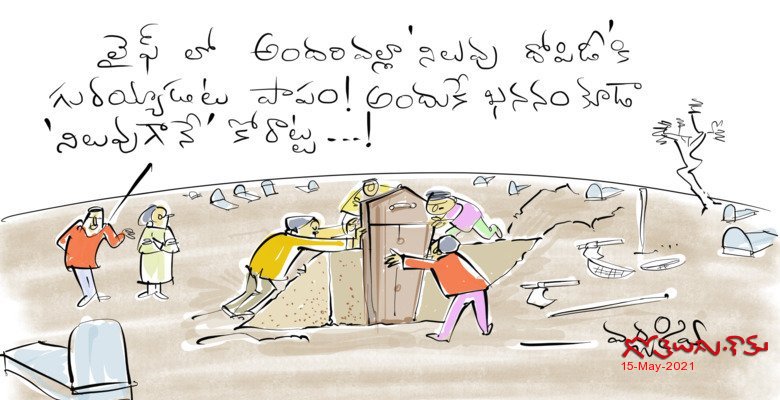 లైఫ్ లో అందరివల్లా 'నిలువు దోపిడీ'కి
గురయ్యాడట పాపం! అందుకే ఖననం కూడా
'నిలువుగానే' కోరాట్ట ...!
గోతెలుగు.కామ్
15-May-2021